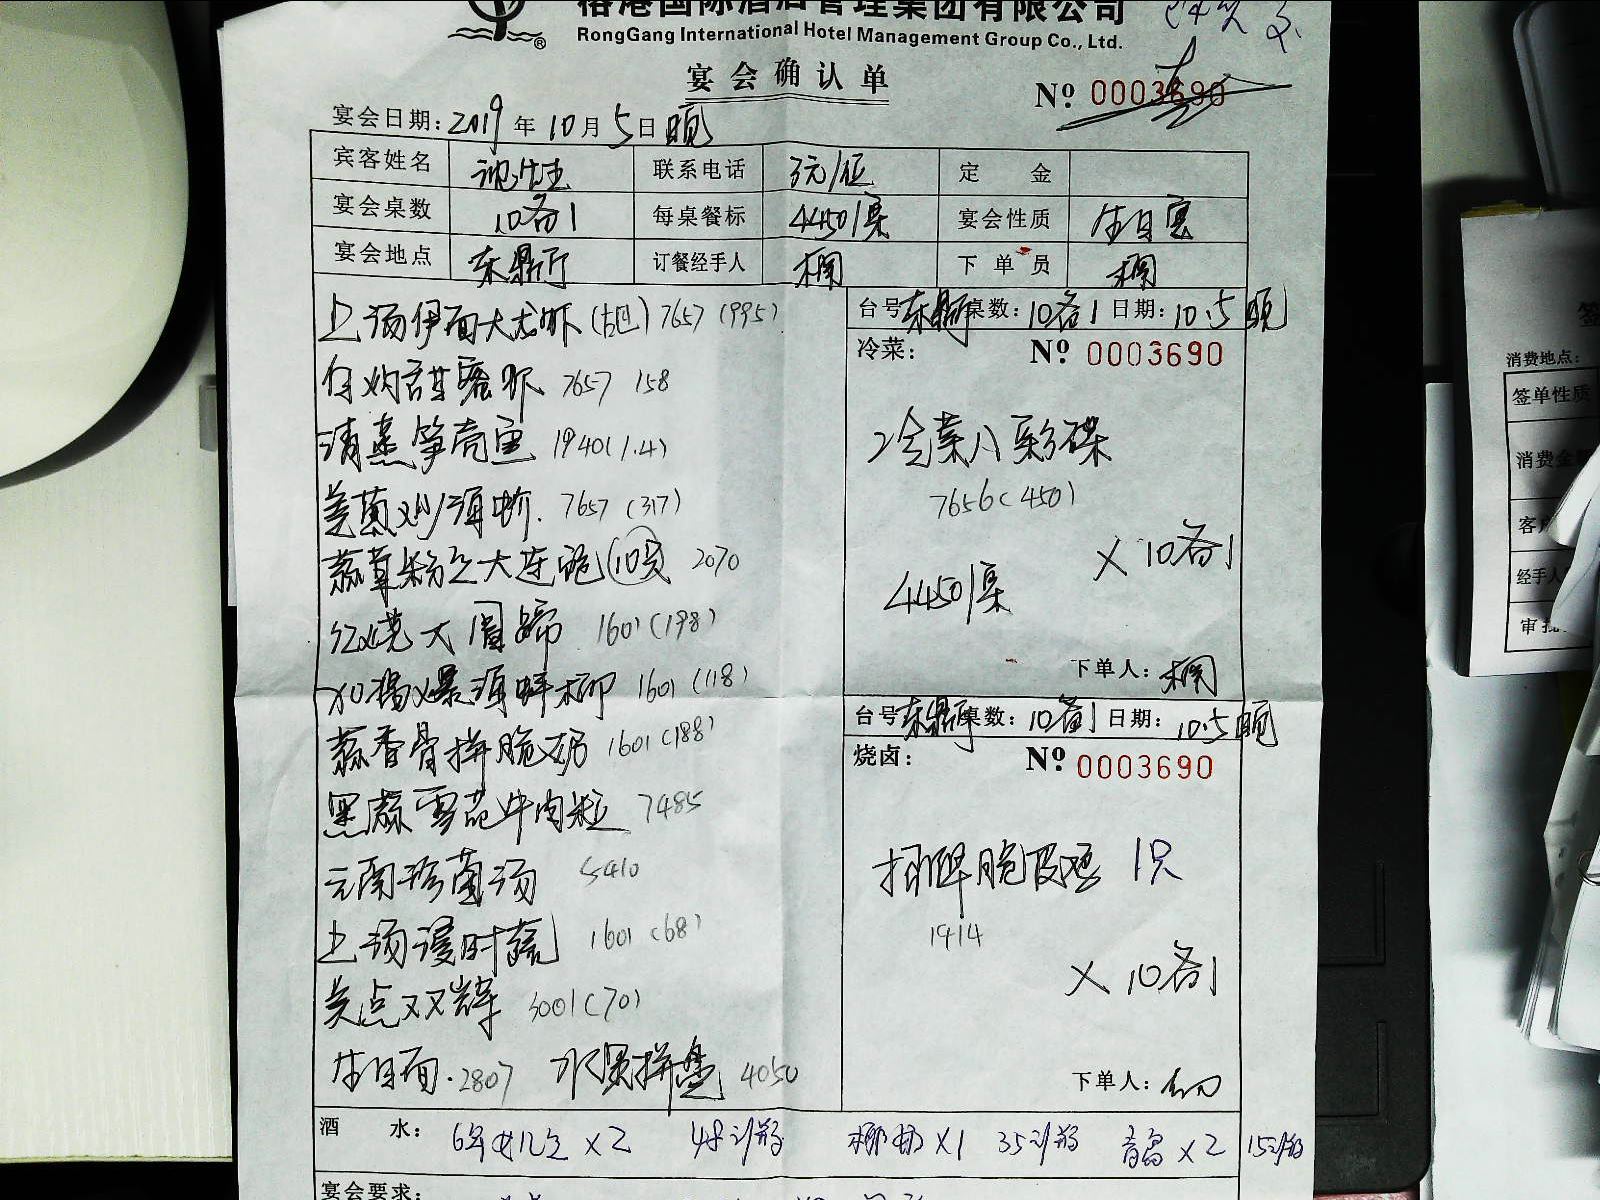 榕港国际酒店管理集团有限公司
RongGang International Hotel Management Group Co., Ltd.
宴会确认单
Nº 0003690
宴会日期：2019年10月5日晚
宾客姓名 沈先生 联系电话 3元/位 定金
宴会桌数 10备1 每桌餐标 4450/桌 宴会性质 生日宴
宴会地点 东鼎厅 订餐经手人 下单员
上汤伊面大龙虾 7657 (995)
7657 158
清蒸笋壳鱼 1940(1.4)
7657 (317)
蒜茸粉丝大连鲍(10只) 2070
红烧大圆蹄 1601(198)
1601 (118)
蒜香骨拼脆奶 1601(188)
黑蒜雪花牛肉粒 7485
云南珍菌汤 5410
上汤浸时蔬 1601(68)
美点双辉 3001(70)
生日面 2807 水果拼盘 4050
台号 东鼎厅 桌数：10备1 日期：10.5晚
冷菜： Nº 0003690
冷菜八彩碟
7656(450)
×10备1
4450/桌
下单人：
台号 东鼎厅 桌数：10备1 日期：10.5晚
烧卤： Nº 0003690
脆皮 1只
1914
×10备1
下单人：
酒水： 6年女儿红×2 48元/瓶 椰奶×1 35元/瓶 青岛×2 15元/瓶
宴会要求：
消费地点：
签单性质
消费金
经手人
审批